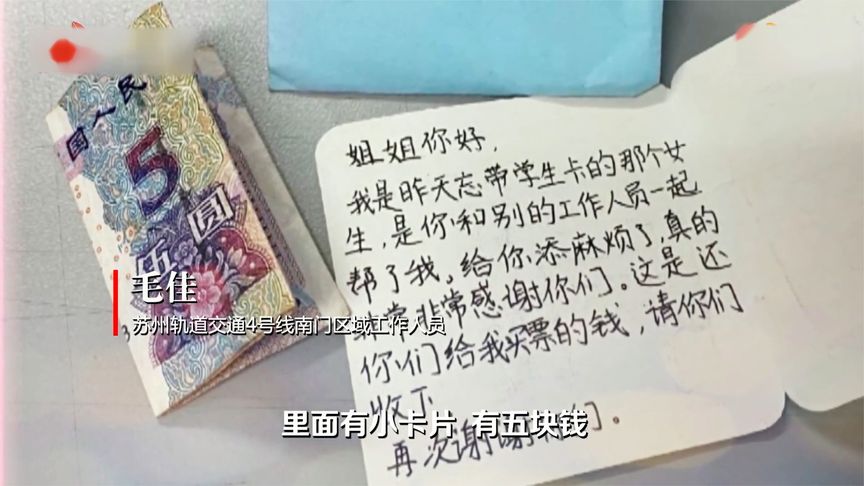 国人民
5
伍圆
姐姐你好,
我是昨天忘带学生卡的那个女
生,是你和别的工作人员一起
帮了我。给你添麻烦了,真的
非常非常感谢你们。这是还
你们给我买票的钱,请你们
收下
再次谢谢你们。
毛佳
苏州轨道交通4号线南门区域工作人员
里面有小卡片 有五块钱